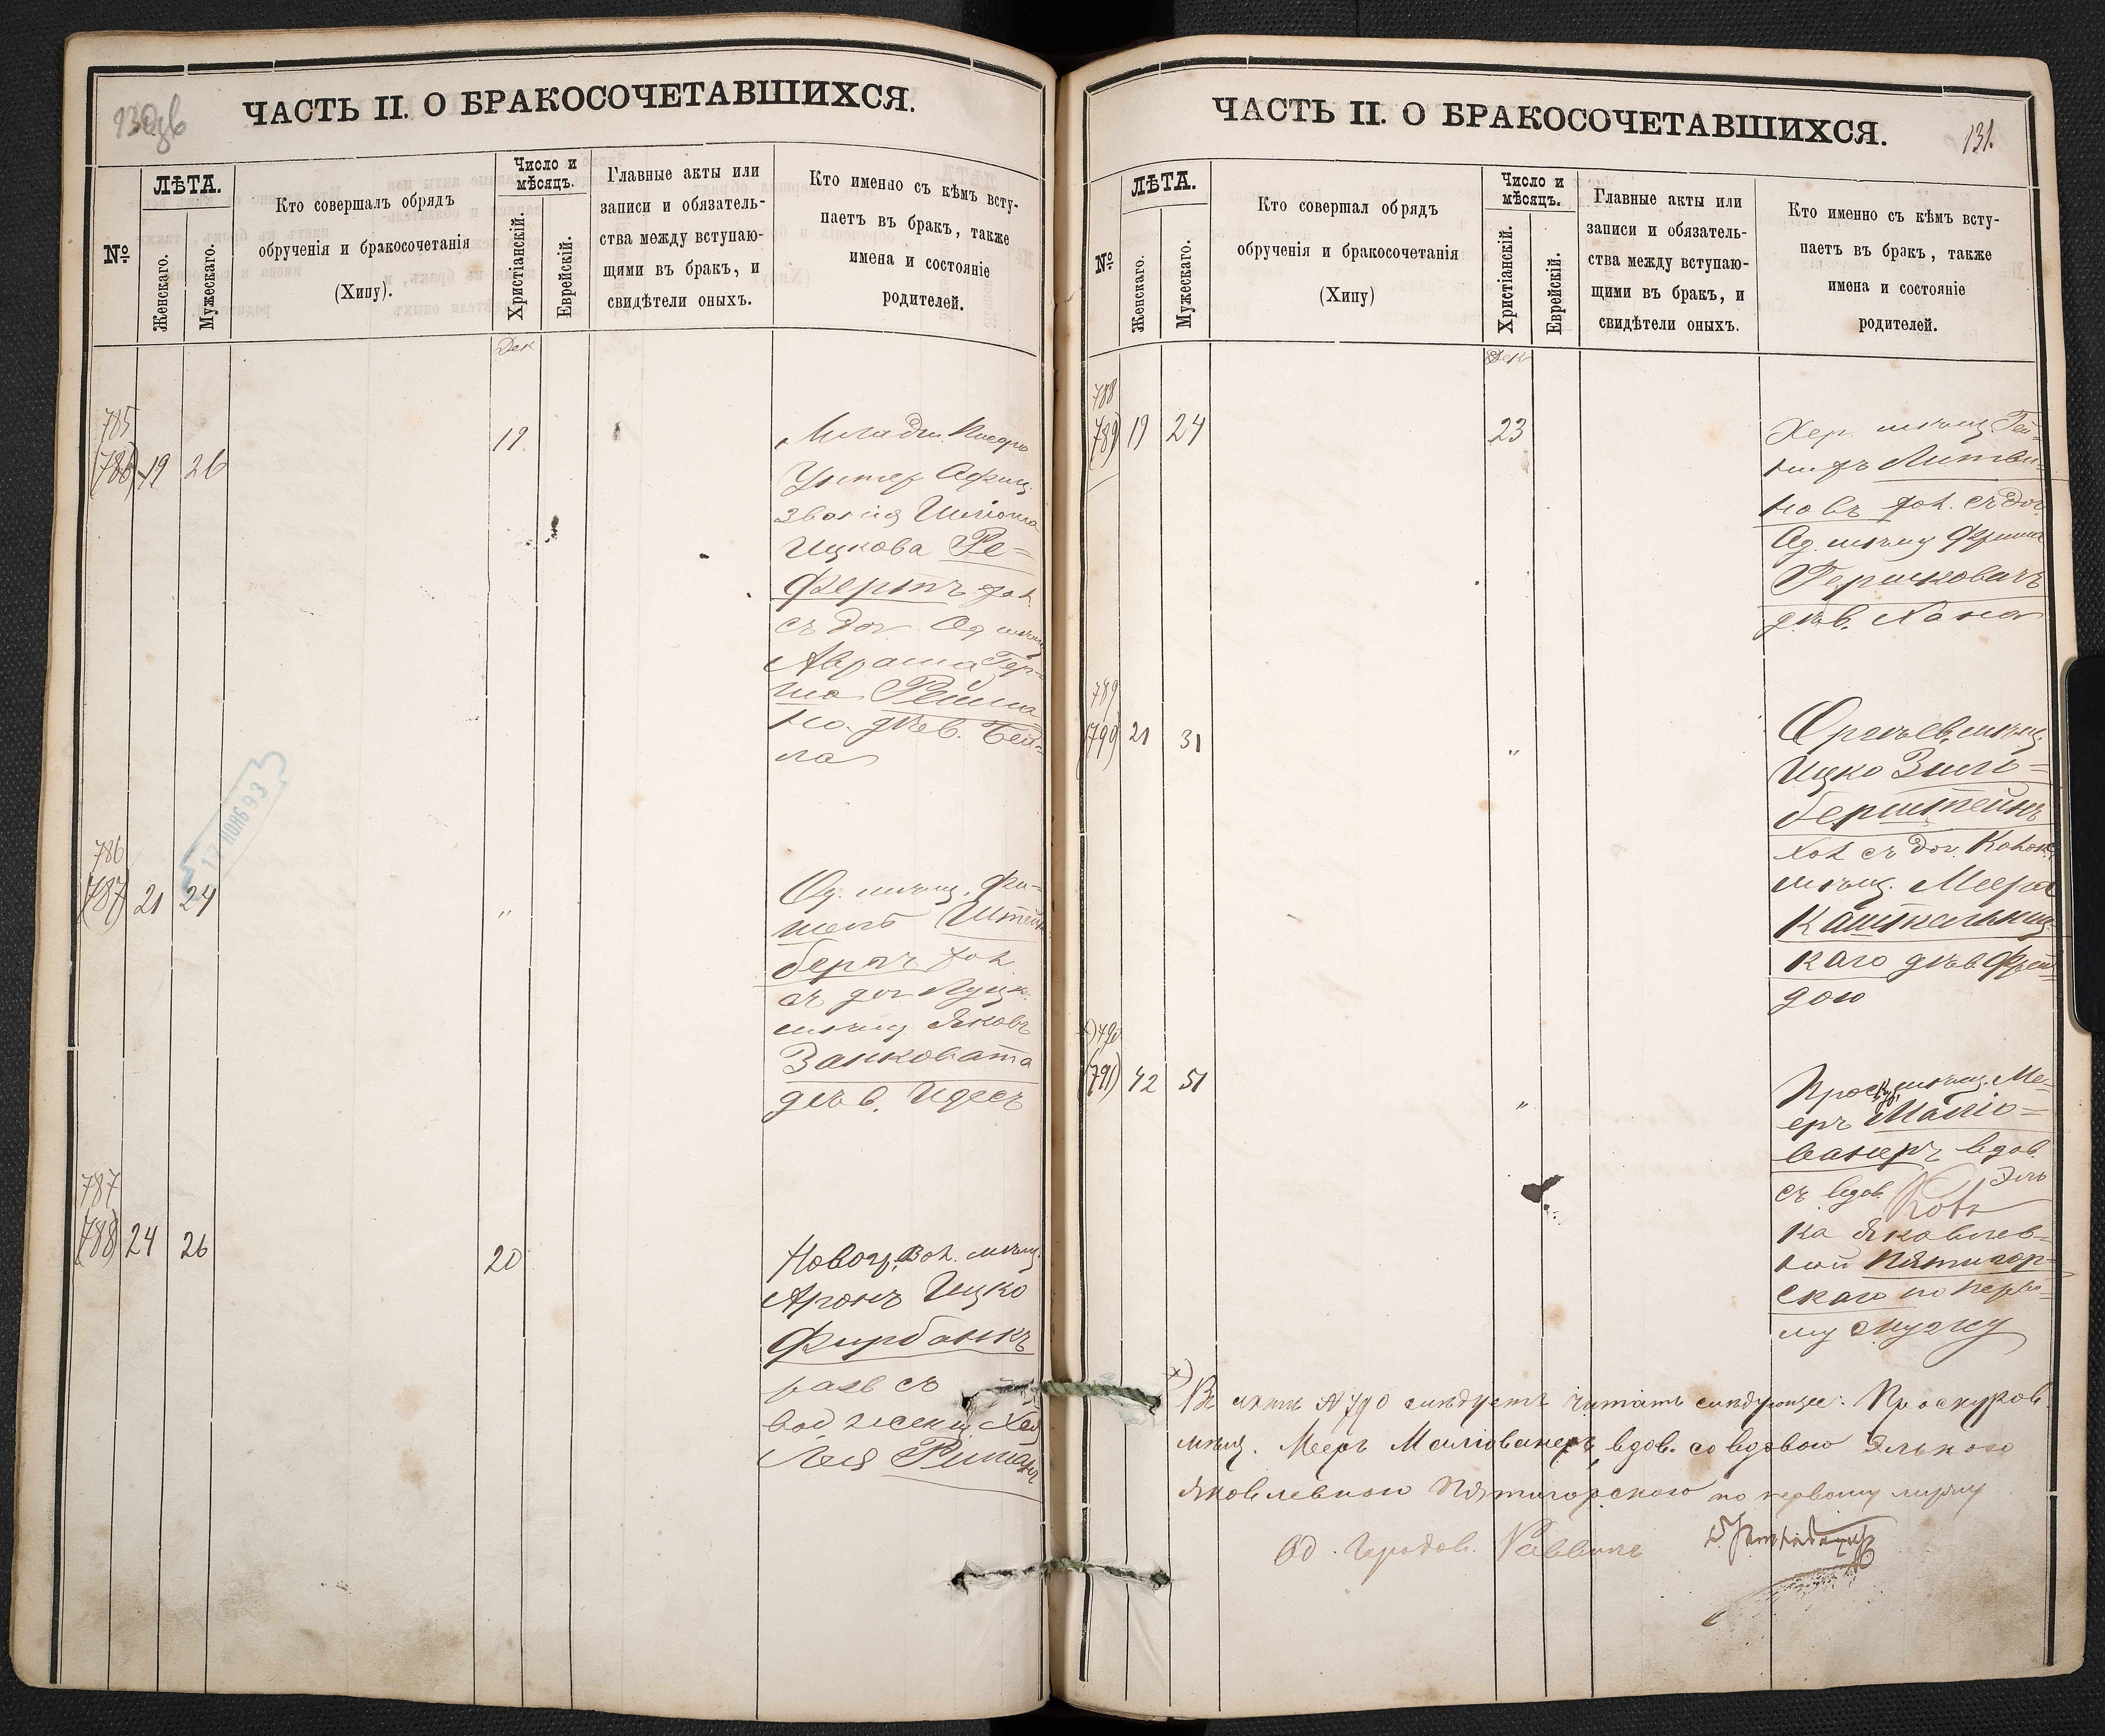 130об
ЧАСТЬ II. О БРАКОСОЧЕТАВШИХСЯ.
№
ЛѢТА.
Женскаго.
Мужескаго.
Кто совершалъ обрядъ
обрученія и бракосочетанія
(Хипу).
Число и
мѣсяцъ.
Христіанскій.
Еврейскій.
Главные акты или
записи и обязатель-
ства между вступаю-
щими въ бракъ, и
свидѣтели оныхъ.
Кто именно съ кѣмъ всту-
паетъ въ бракъ, также
имена и состояніе
родителей.
Дек
785
(786) 19 26
19
Младш.
Унтер Офиц.
званія Шліома
Ицкова Ре=
фертъ хол
съ доч. Од мѣщ
Аврама Гер=
ша Рейма
но. дѣв. Бей=
ла
17 НОЯБ 93
786
(787) 21 24
"
Од. мѣщ. Фи=
шель Штейн
бергъ хол
съ доч
мѣщ Яковъ
Занковата
дѣв. Идесъ
787
(788) 24 26
20
Новогр. Вол. мѣщ.
Аронъ Ицко
Фирбанкъ
разв съ
Хая
Лея
131.
ЧАСТЬ II. О БРАКОСОЧЕТАВШИХСЯ.
№
ЛѢТА.
Женскаго.
Мужескаго.
Кто совершал обрядъ
обрученія и бракосочетанія
(Хипу)
Число и
мѣсяцъ.
Христіанскій.
Еврейскій.
Главные акты или
записи и обязатель-
ства между вступаю-
щими въ бракъ, и
свидѣтели оныхъ.
Кто именно съ кѣмъ всту-
паетъ въ бракъ, также
имена и состояніе
родителей.
Дек
788
(789) 19 24
23
Хер. мѣщ. Гей=
Литви=
новъ хол. съ доч.
Од. мѣщ Фроима
Гершковичъ
дѣв. Хана
789
(790) 21 31
"
Оргѣев. мѣщ.
Ицко Зиль=
берштейнъ
хол съ доч.
мѣщ. Меера
Каштельниц
каго дѣв Фрей
дою
х) 790
(791) 42 51
"
Проскур. мѣщ. Ме=
еръ Маліо=
ванеръ вдов.
съ вдов. Эль
ка Яковлев=
ной Пятигор=
скаго по перво=
му мужу
х)
Въ актѣ № 790 слѣдуетъ читать слѣдующее: Проскуров.
мѣщ. Меер Маліованеръ, вдов. со вдовою Элькою
Яковлевною Пятигорского по первому мужу
Од. Городов. Раввинъ